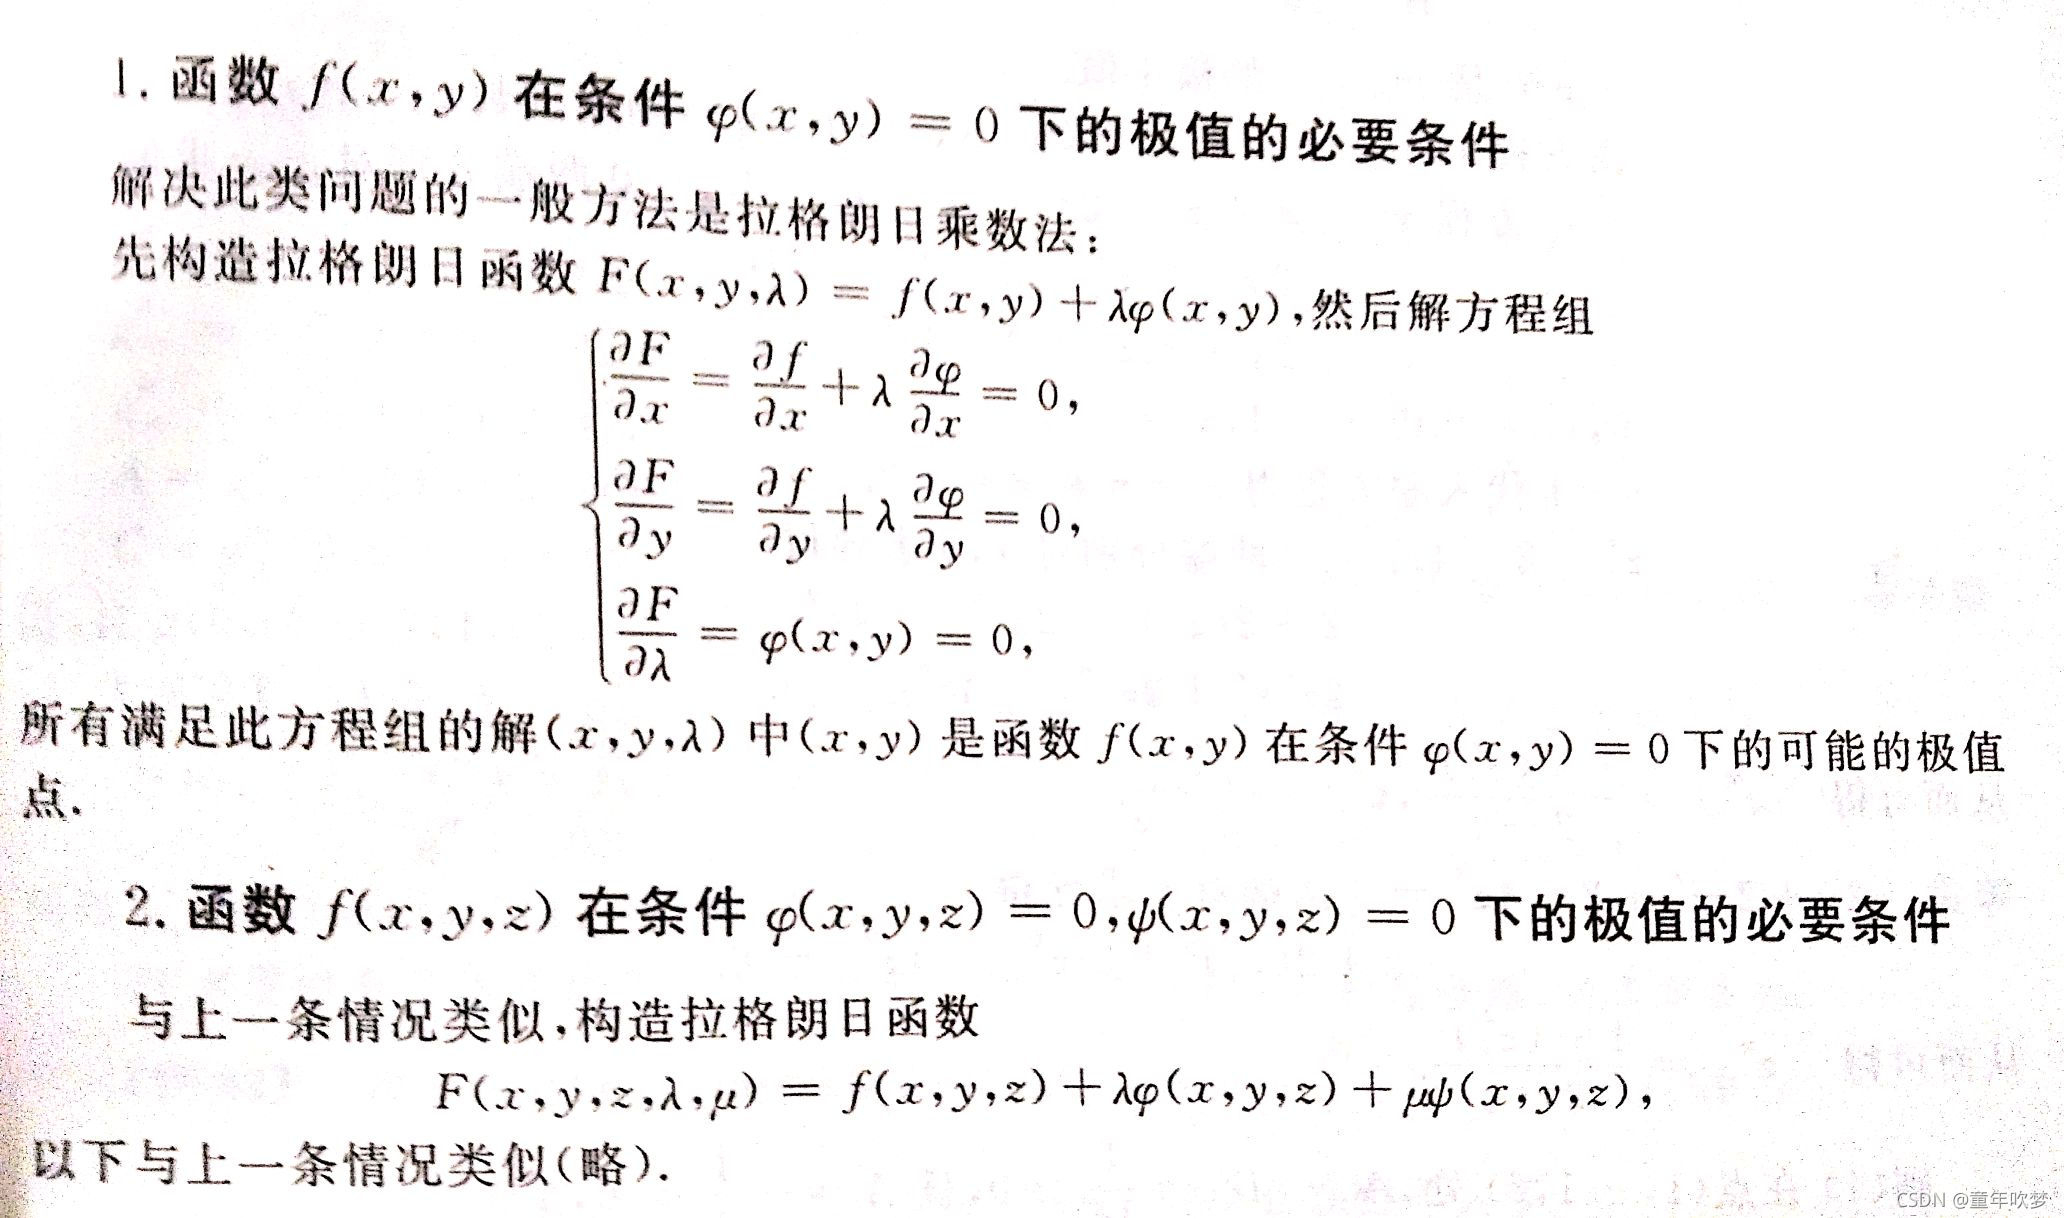 1. 函数 f(x,y) 在条件 φ(x,y) = 0 下的极值的必要条件
解决此类问题的一般方法是拉格朗日乘数法:
先构造拉格朗日函数 F(x,y,λ) = f(x,y)+λφ(x,y),然后解方程组
∂F/∂x = ∂f/∂x + λ ∂φ/∂x = 0,
∂F/∂y = ∂f/∂y + λ ∂φ/∂y = 0,
∂F/∂λ = φ(x,y) = 0,
所有满足此方程组的解(x,y,λ) 中(x,y) 是函数 f(x,y) 在条件 φ(x,y) = 0 下的可能的极值
点.
2. 函数 f(x,y,z) 在条件 φ(x,y,z) = 0,ψ(x,y,z) = 0 下的极值的必要条件
与上一条情况类似,构造拉格朗日函数
F(x,y,z,λ,μ) = f(x,y,z)+λφ(x,y,z)+μψ(x,y,z),
以下与上一条情况类似(略).
CSDN @童年吹梦